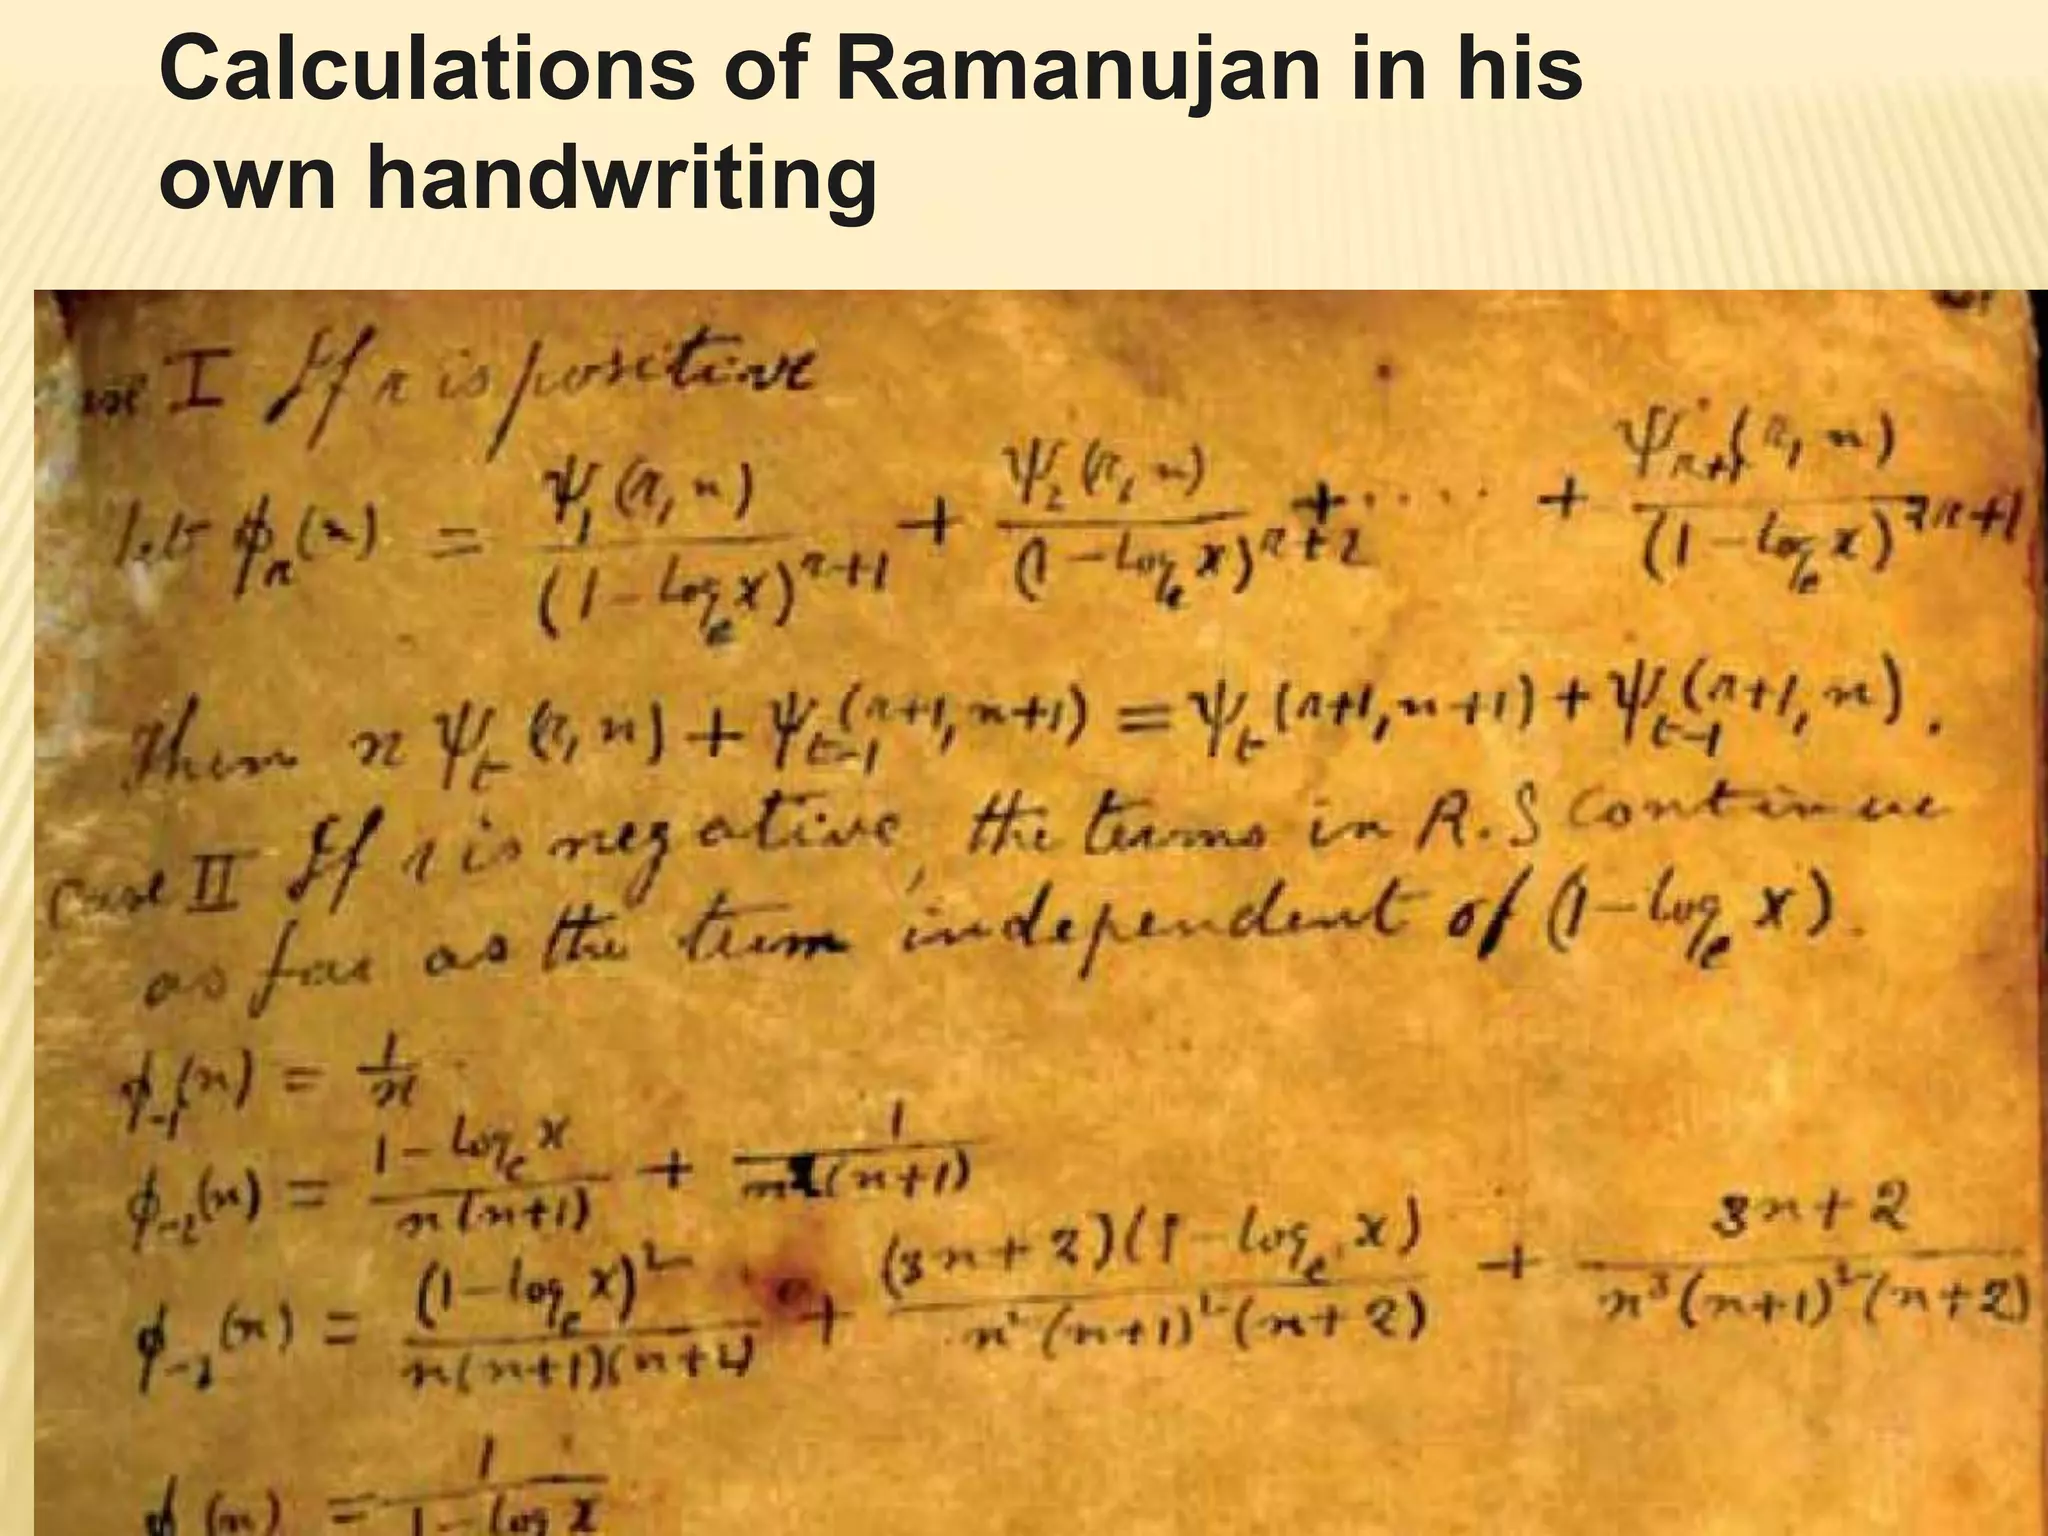 Calculations of Ramanujan in his
own handwriting
Case I If r is positive
let ϕ_r(n) = ψ_1(r, n)/(1 − log_e x)^{r+1} + ψ_2(r, n)/(1 − log_e x)^{r+2} + .... + ψ_{r+1}(r, n)/(1 − log_e x)^{2r+1}
Then n ψ_t(r, n) + ψ_{t−1}(r+1, n+1) = ψ_t(r+1, n+1) + ψ_{t−1}(r+1, n).
Case II If r is negative, the terms in R.S continue
as far as the term independent of (1 − log_e x).
ϕ_{−1}(n) = 1/n
ϕ_{−2}(n) = (1 − log_e x)/(n(n+1)) + 1/((n+1))
ϕ_{−3}(n) = (1 − log_e x)^2/(n(n+1)(n+2)) + (3n+2)(1 − log_e x)/(n^2(n+1)^2(n+2)) + (3n+2)/(n^3(n+1)^2(n+2))
ϕ(n) = 1/(1 − log x)